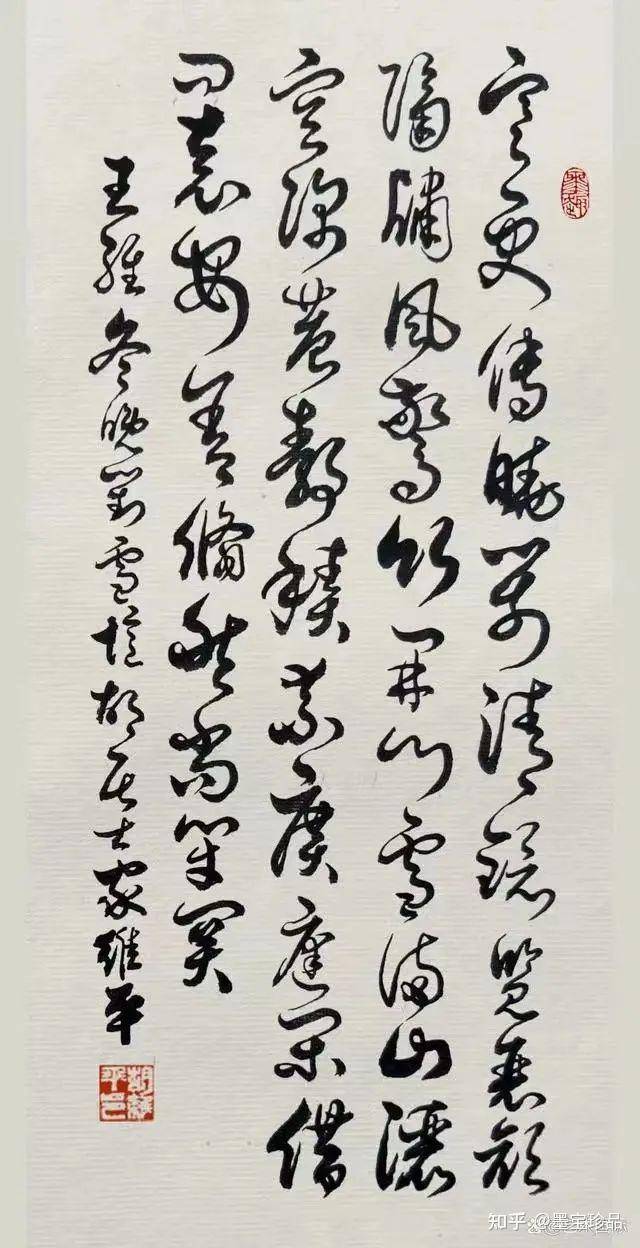 寒更傳曉箭清鏡覽衰顏
隔牖風驚竹開門雪滿山灑
空深巷靜積素廣庭閑借
問袁安舍翛然尚閉關
王維冬晚對雪憶胡居士家平
知乎 @墨宝珍品